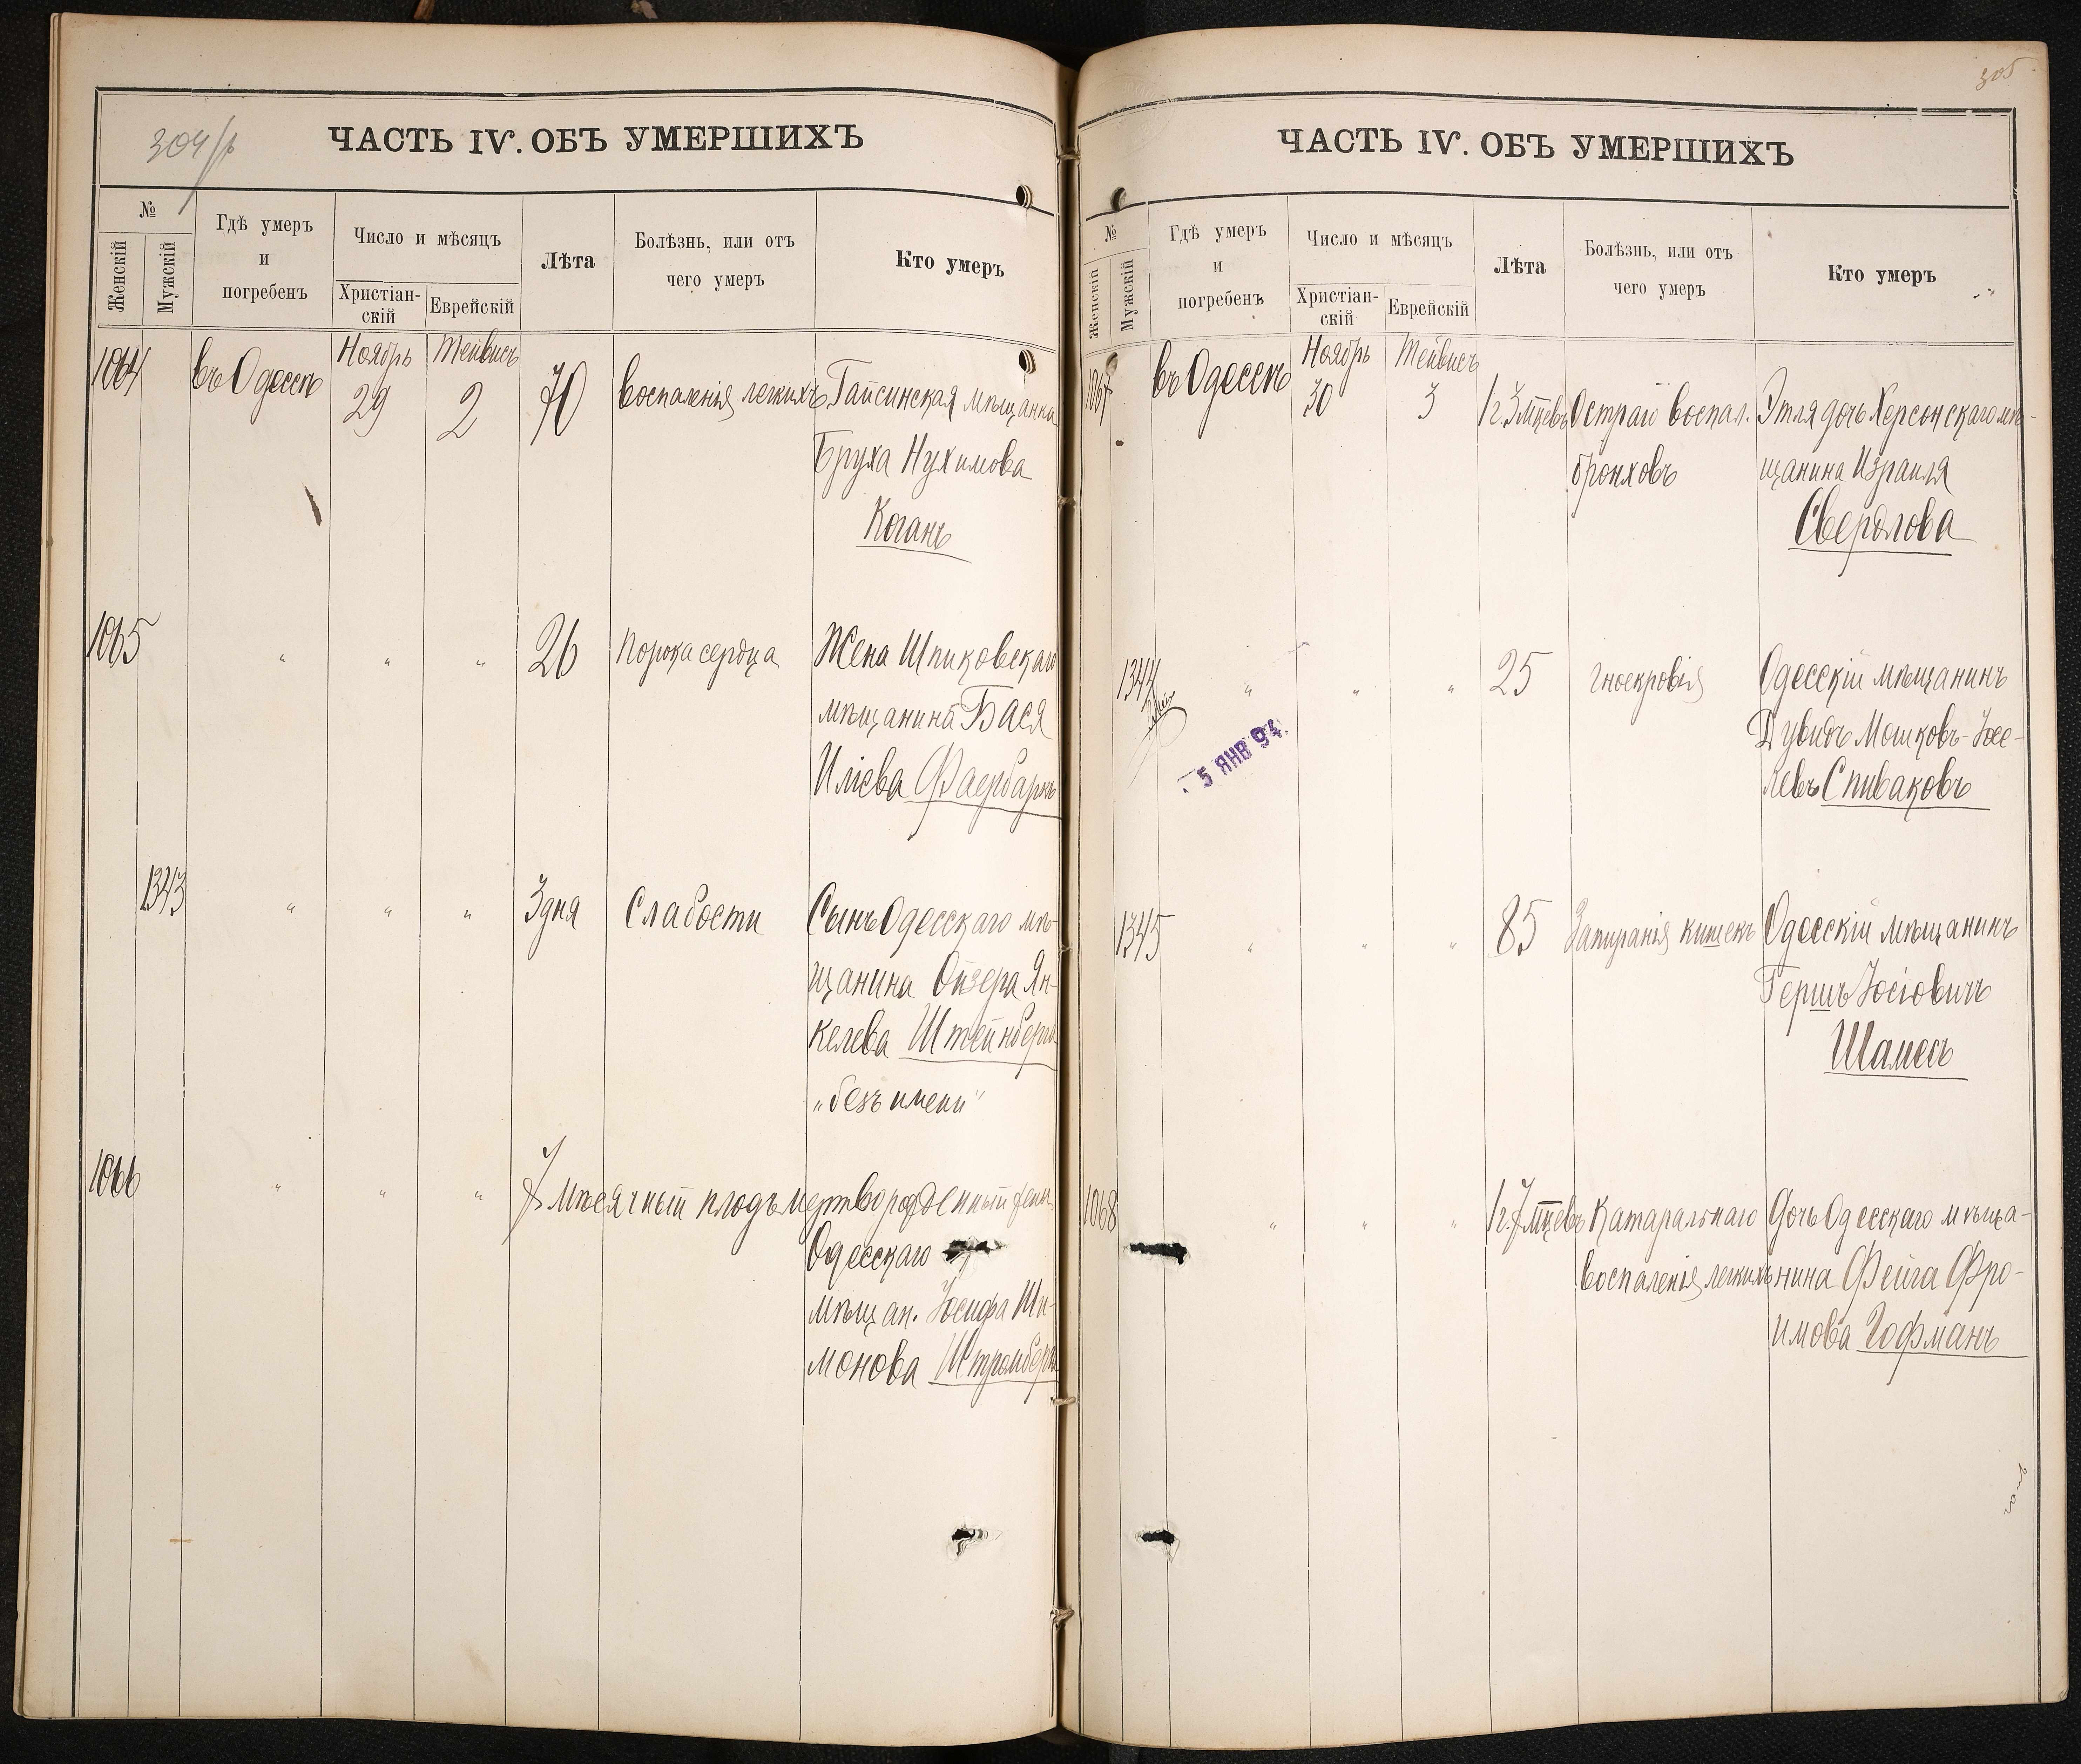 304/р
ЧАСТЬ IV. ОБЪ УМЕРШИХЪ
№
Женскій
Мужскій
Гдѣ умеръ
и
погребенъ
Число и мѣсяцъ
Христіан-
скій
Еврейскій
Лѣта
Болѣзнь, или отъ
чего умеръ
Кто умеръ
1064 въ Одессѣ Ноябрь 29 Тейвисъ 2 70 воспаленія легкихъ Гайсинская мѣщанка
Бруха Нухимова
Коганъ
1065 " " " 26 Порока сердца Жена Шпиковскаго
мѣщанина Бася
Иліева Фаербаргъ
1343 " " " 3 дня Слабости Сынъ Одесскаго мѣ-
щанина Ойзера Ян-
келева Штейнберга
"безъ имени"
1066 " " " 7 мѣсячный плодъ мертворожденный
Одесскаго
мѣщан. Іосифа Ши-
монова Штромберга
305
ЧАСТЬ IV. ОБЪ УМЕРШИХЪ
№
Женскій
Мужскій
Гдѣ умеръ
и
погребенъ
Число и мѣсяцъ
Христіан-
скій
Еврейскій
Лѣта
Болѣзнь, или отъ
чего умеръ
Кто умеръ
1067 въ Одессѣ Ноябрь 30 Тейвисъ 3 1 г. 3 мцевъ Остраго воспал. Этля дочь Херсонскаго мѣ-
бронховъ щанина Израиля
Свердлова
1344 " " " 25 Гноекровія Одесскій мѣщанинъ
Дувидъ Мошковъ-Іосе-
левъ Спиваковъ
5 ЯНВ 94.
1345 " " " 85 Запиранія кишекъ Одесскій мѣщанинъ
Гершъ Іосіовичъ
Шамесъ
1068 " " " 1 г. 7 мцевъ Катаральнаго Дочь Одесскаго мѣща-
воспаленія легкихъ нина Фейга Фро-
имова Гофманъ